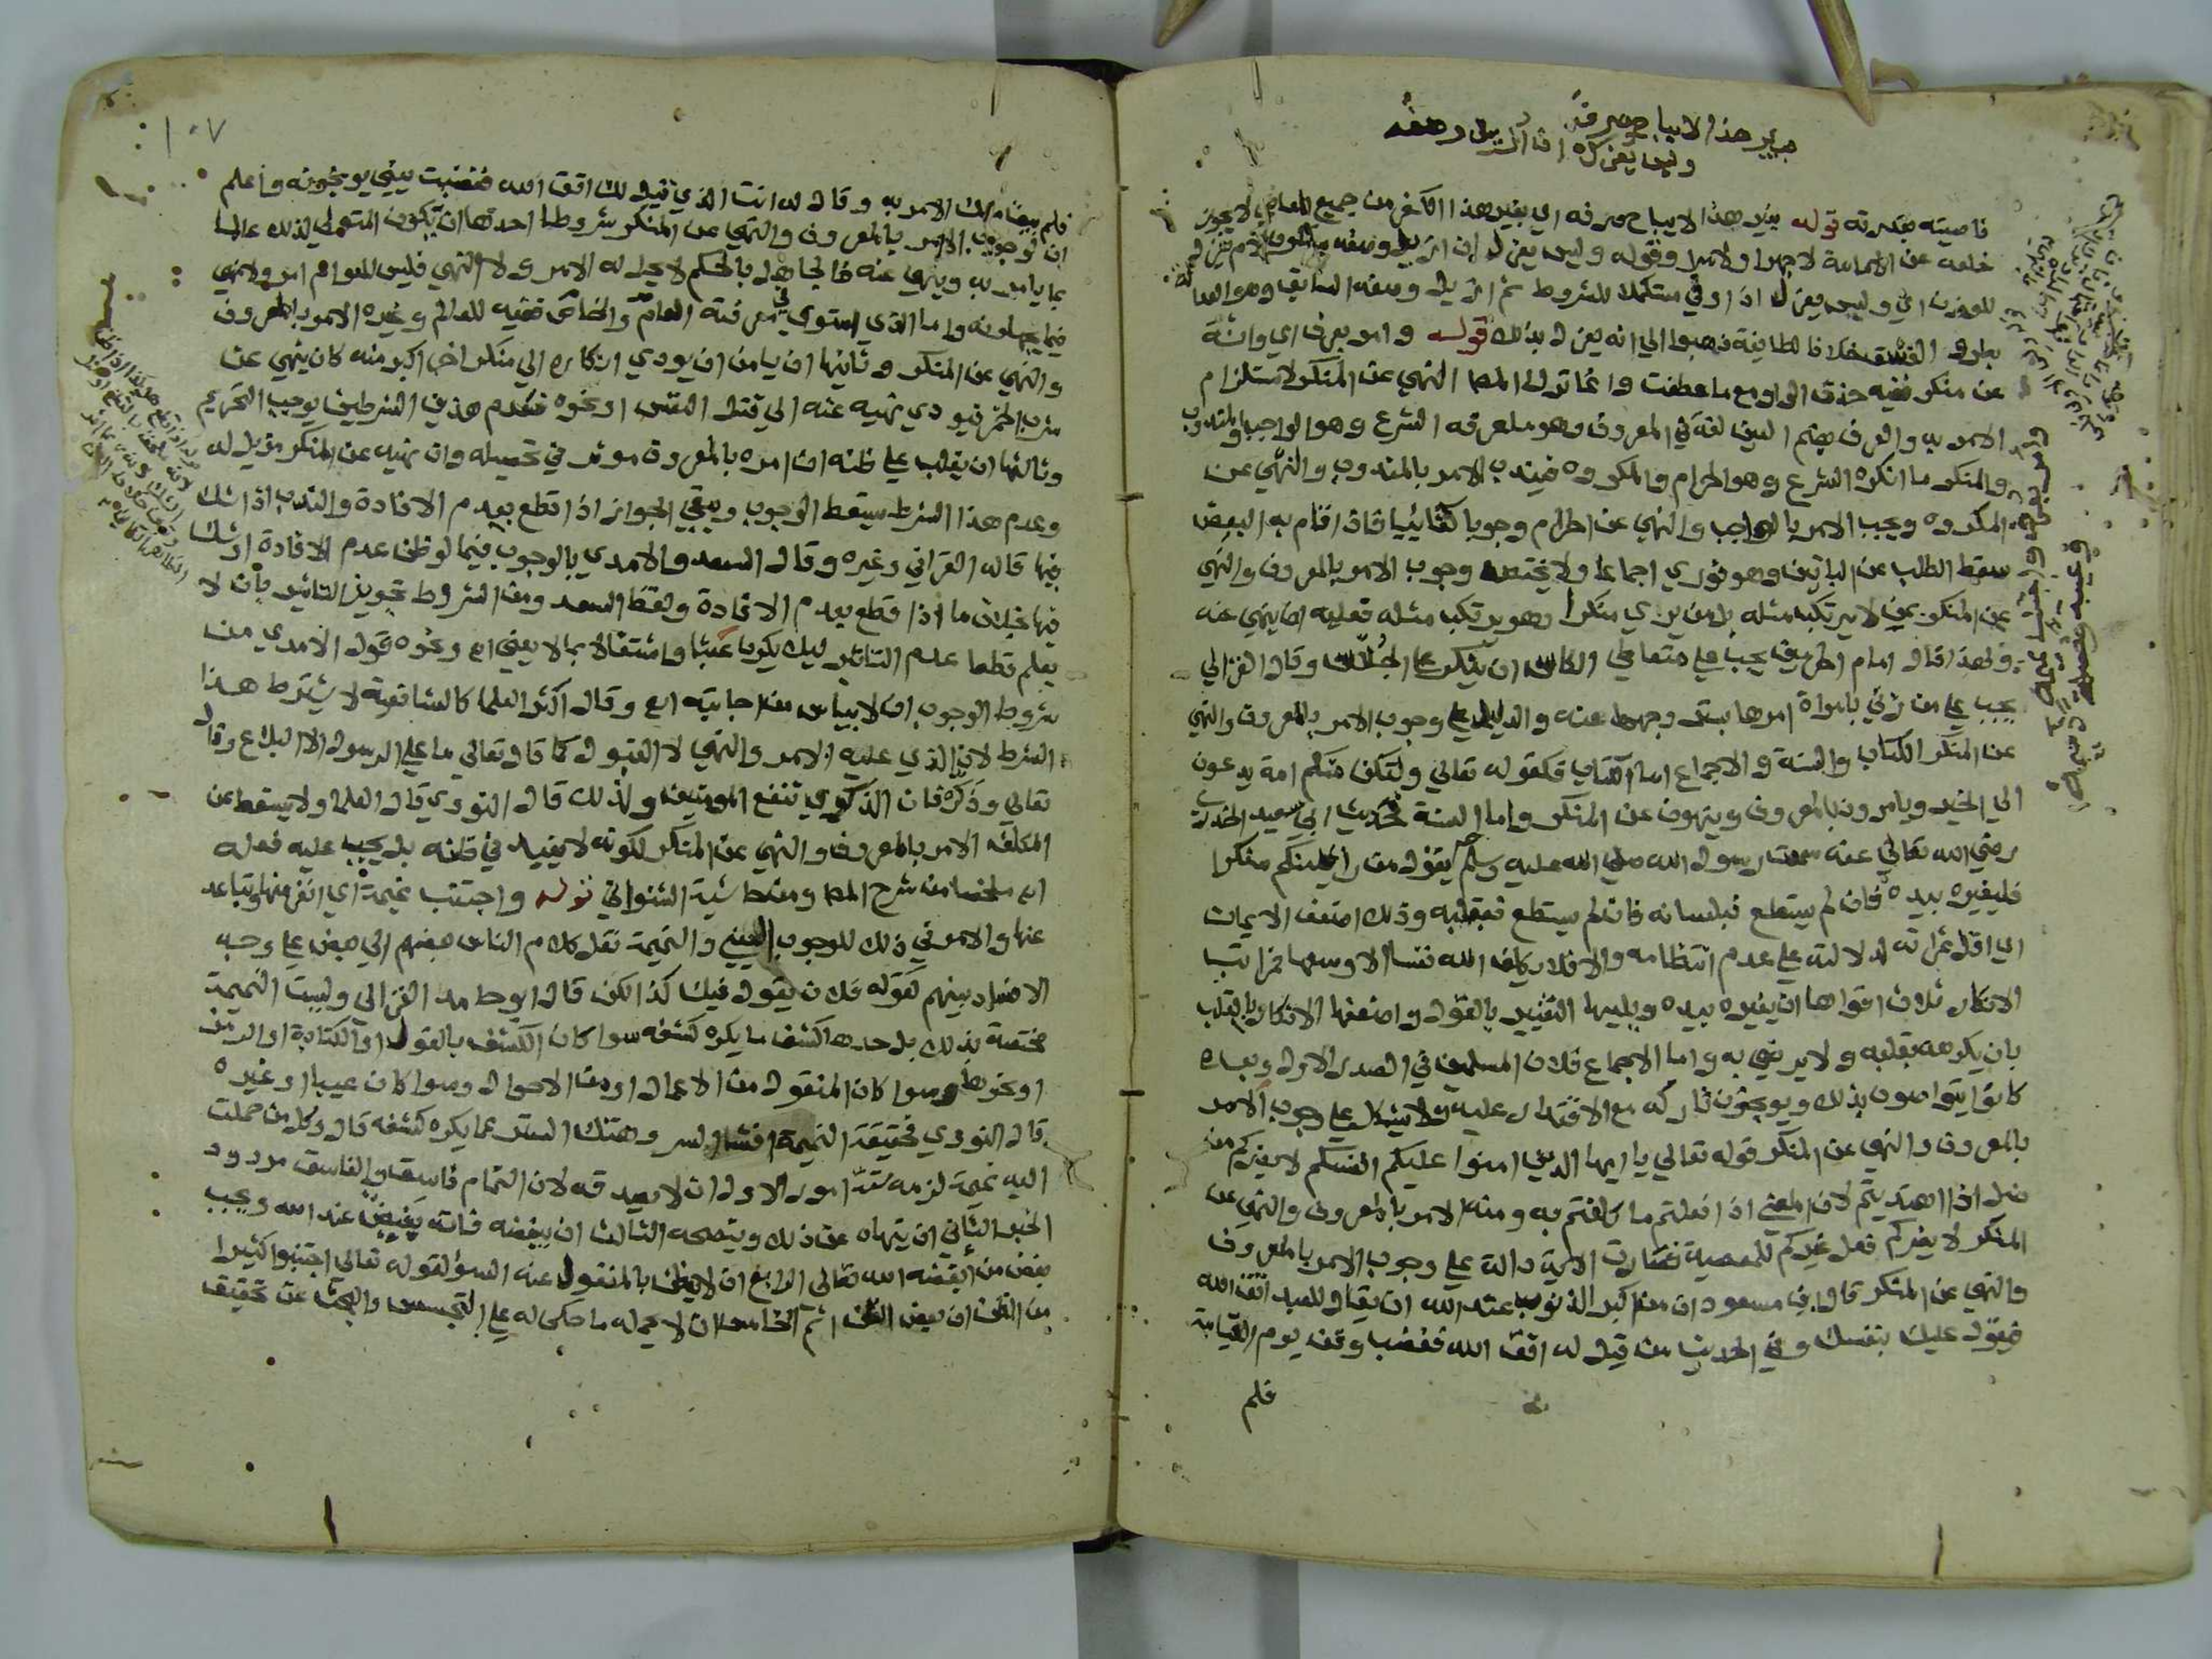 بغير هذا لا يباح صرفه
وليس يعزل ان ازيل وصفه
ناصيته بقدرته قوله بغير هذا لا يباح صرفه اي بغير هذا الكفر من جميع المعاصي لا يجوز
خلعه عن الامامة لا جهرا ولا سرا وقوله وليس يعزل ان ازيل وصفه
للوزن اي وليس يعزل اذا ولي مستكملا للشروط ثم ازيل وصفه السابق وهو العدالة
بطرو الفسق خلافا لطايفة ذهبوا الي انه يعزل بذلك قوله وامر بعرف اي وانته
عن منكر ففيه حذف الواو مع ما عطفت وانما ترك المص النهي عن المنكر لاستلزام
الامر به والعرف بضم العين لغة في المعروف وهو ما عرفه الشرع وهو الواجب والمندوب
والمنكر ما انكره الشرع وهو الحرام والمكروه فيندب الامر بالمندوب والنهي عن
المكروه ويجب الامر بالواجب والنهي عن الحرام وجوبا كفائيا فاذا قام به البعض
سقط الطلب عن الباقين وهو فوري اجماعا ولا يختص وجوب الامر بالمعروف والنهي
عن المنكر بمن لا يرتكب مثله بل من يري منكرا وهو يرتكب مثله فعليه ان ينهي عنه
ولهذا قال امام الحرمين يجب علي متعاطي الكاس ان ينكر علي الجلاس وقال الغزالي
يجب علي من زني بامراة امرها بستر وجهها عنه والدليل علي وجوب الامر بالمعروف والنهي
عن المنكر الكتاب والسنة والاجماع اما الكتاب فكقوله تعالي ولتكن منكم امة يدعون
الي الخير ويامرون بالمعروف وينهون عن المنكر واما السنة فحديث ابي سعيد الخدري
رضي الله تعالي عنه سمعت رسول الله صلي الله عليه وسلم يقول من راي منكم منكرا
فليغيره بيده فان لم يستطع فبلسانه فان لم يستطع فبقلبه وذلك اضعف الايمان
اي اقل ثمراته لدلالته علي عدم انتظامه والا فلا يكلف الله نفسا الا وسعها فمراتب
الانكار ثلاث اقواها ان يغيره بيده ويليها التغيير بالقول واضعفها الانكار بالقلب
بان يكرهه بقلبه ولا يرضي به واما الاجماع فلان المسلمين في الصدر الاول وبعده
كانوا يتواصون بذلك ويوبخون تاركه مع الاقتدار عليه ولا يشكل علي وجوب الامر
بالمعروف والنهي عن المنكر قوله تعالي يا ايها الذين امنوا عليكم انفسكم لا يضركم من
ضل اذا اهتديتم لان المعني اذا فعلتم ما كلفتم به ومنه الامر بالمعروف والنهي عن
المنكر لا يضركم فعل غيركم للمعصية فصارت الاية دالة علي وجوب الامر بالمعروف
والنهي عن المنكر قال ابن مسعود ان من اكبر الذنوب عند الله ان يقال للعبد اتق الله
فيقول عليك بنفسك وفي الحديث من قيل له اتق الله فغضب وقف يوم القيامة
فلم
١٠٧
فلم يبق ملك الا مر به وقال له انت الذي قيل لك اتق الله فغضبت يعني يوبخونه واعلم
ان لوجوب الامر بالمعروف والنهي عن المنكر شروطا احدها ان يكون المتولي لذلك عالما
بما يامر به وينهي عنه فالجاهل بالحكم لا يحل له الامر ولا النهي فليس للعوام امر ولا نهي
فيما يجهلونه واما الذي استوي في معرفته العام والخاص ففيه للعالم وغيره الامر بالمعروف
والنهي عن المنكر وثانيها ان يامن ان يودي انكاره الي منكر اخر اكبر منه كان ينهي عن
شرب الخمر فيودي نهيه عنه الي قتل النفس او نحوه فعدم هذين الشرطين يوجب التحريم
وثالثها ان يغلب علي ظنه ان امره بالمعروف موثر في تحصيله وان نهيه عن المنكر مزيل له
وعدم هذا الشرط يسقط الوجوب ويبقي الجواز اذا قطع بعدم الافادة والندب اذا شك
فيها قاله القرافي وغيره وقال السعد والامدي بالوجوب فيما لو ظن عدم الافادة او شك
فيها بخلاف ما اذا قطع بعدم الافادة ولفظ السعد ومن الشروط تجويز التاثير بان لا
يعلم قطعا عدم التاثير ليلا يكون عبثا واشتغالا بما لا يعني اه ونحوه قول الامدي من
شروط الوجوب ان لا ييأس من اجابته اه وقال اكثر العلما كالشافعية لا يشترط هذا
الشرط لان الذي عليه الامر والنهي لا القبول كما قال تعالي ما علي الرسول الا البلاغ وقال
تعالي وذكر فان الذكري تنفع المومنين ولذلك قال النووي قال العلما ولا يسقط عن
المكلف الامر بالمعروف والنهي عن المنكر لكونه لا يفيد في ظنه بل يجب عليه فعله
اه ملخصا من شرح المص ومن حاشية الشنواني قوله واجتنب نميمة اي انفر منها وتباعد
عنها والامر في ذلك للوجوب العيني والنميمة نقل كلام الناس بعضهم الي بعض علي وجه
الافساد بينهم كقوله فلان يقول فيك كذا لكن قال ابو حامد الغزالي وليست النميمة
مختصة بذلك بل حدها كشف ما يكره كشفه سوا كان الكشف بالقول او الكتابة او الرمز
او نحوها وسوا كان المنقول من الاعمال او من الاحوال وسوا كان عيبا او غيره
قال النووي فحقيقة النميمة افشا السر وهتك الستر عما يكره كشفه قال وكل من حملت
اليه نميمة لزمه ستة امور الاول ان لا يصدقه لان النمام فاسق والفاسق مردود
الخبر الثاني ان ينهاه عن ذلك وينصحه الثالث ان يبغضه فانه بغيض عند الله ويجب
بغض من ابغضه الله تعالي الرابع ان لا يظن بالمنقول عنه السؤ لقوله تعالي اجتنبوا كثيرا
من الظن ان بعض الظن اثم الخامس ان لا يحمله ما حكي له علي التجسس والبحث عن تحقيق